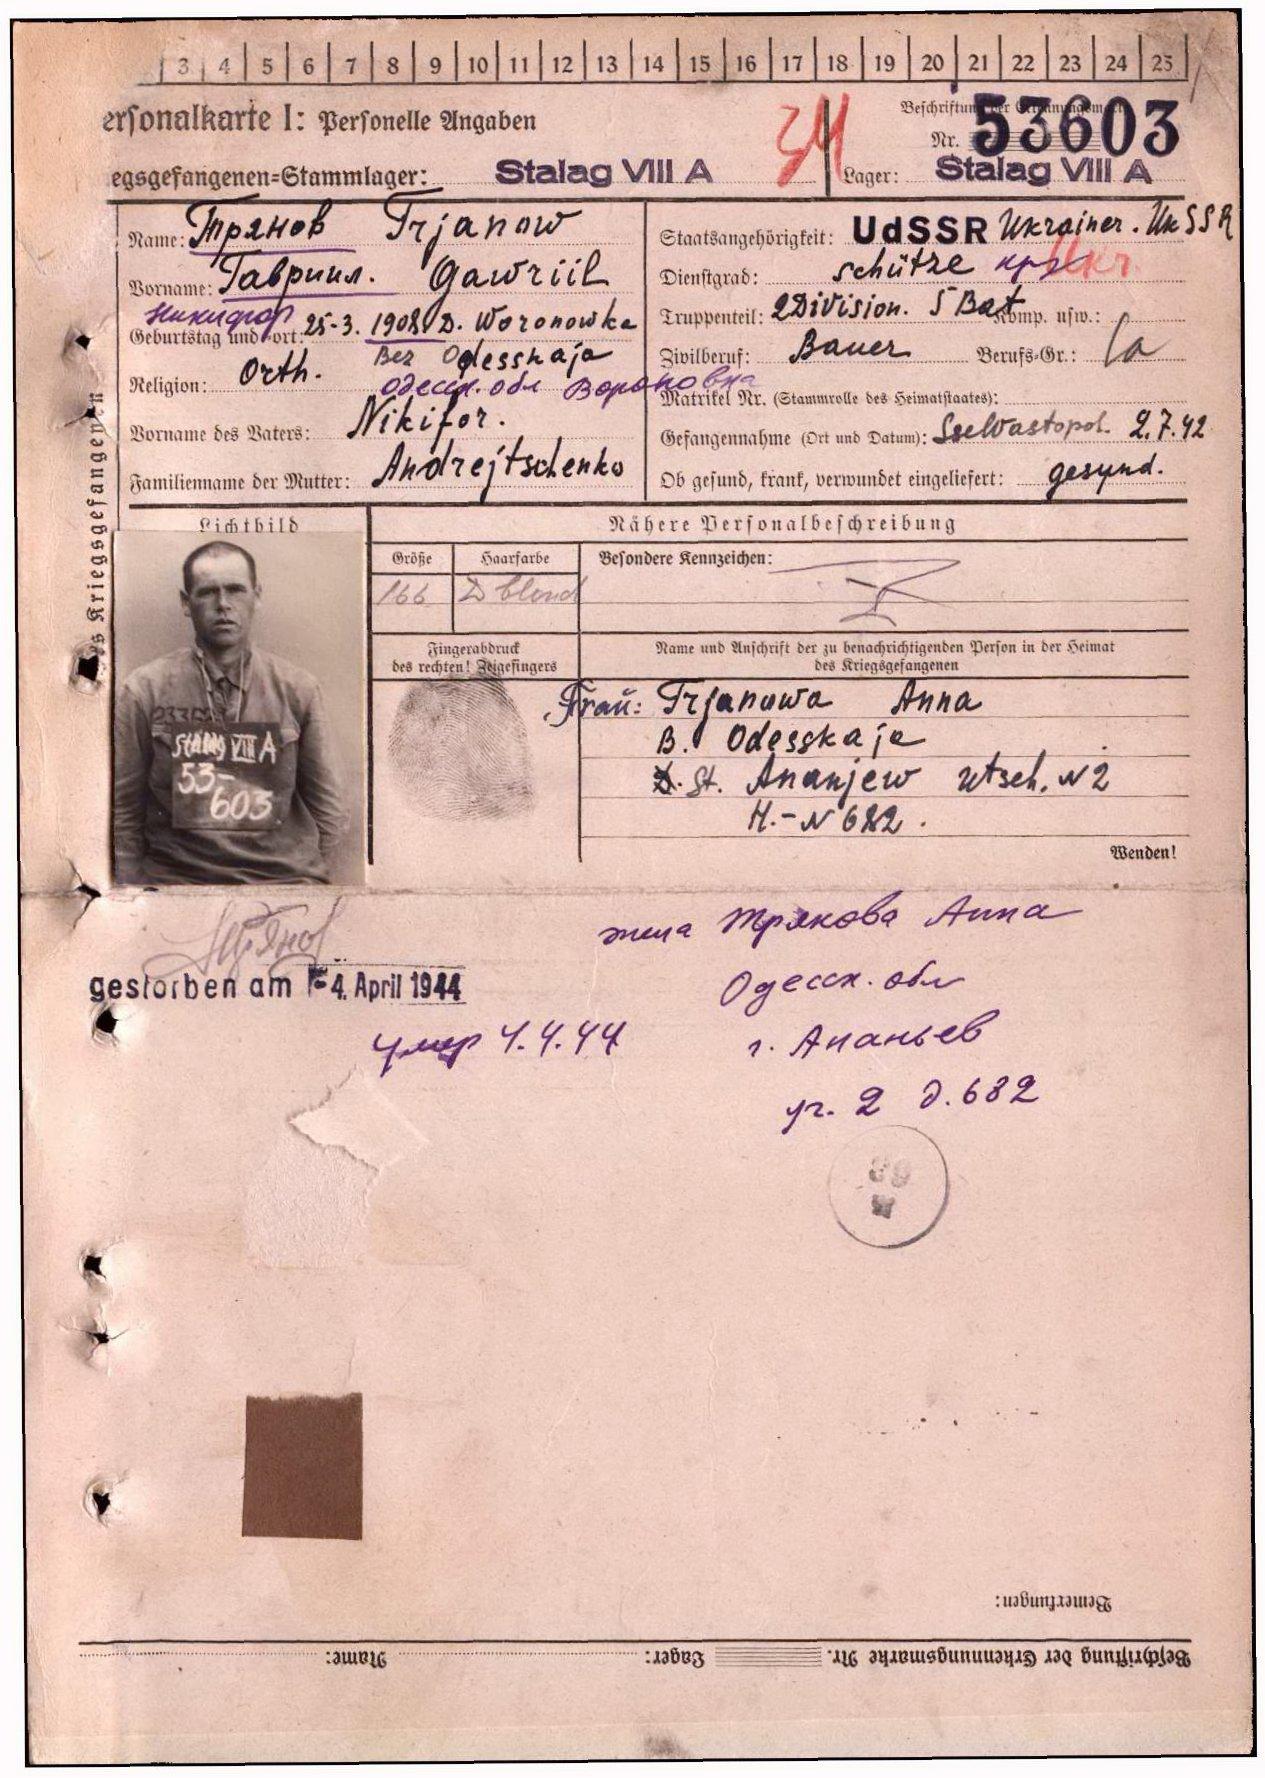 3 4 5 6 7 8 9 10 11 12 13 14 15 16 17 18 19 20 21 22 23 24 25
ersonalkarte I: Personelle Angaben
Beschriftung der Erkennungsm
Nr. 53603
egsgefangenen=Stammlager: Stalag VIII A
Lager: Stalag VIII A
Name: Трянов Trjanow
Vorname: Гавриил. Gawriil
Никифор
Geburtstag und =ort: 25-3. 1908 D. Woronowka
Bez Odesskaja
Religion: Orth.
Одесск. обл Вороновка
Vorname des Vaters: Nikifor.
Familienname der Mutter: Andrejtschenko
Staatsangehörigkeit: UdSSR Ukrainer. UkSSR
Dienstgrad: Schütze кр Укр.
Truppenteil: 2 Division. 5 Bat Komp. usw.:
Zivilberuf: Bauer Berufs=Gr.: la
Matrikel Nr. (Stammrolle des Heimatstaates):
Gefangennahme (Ort und Datum): Ssewastopol. 2.7.42
Ob gesund, krank, verwundet eingeliefert: gesund.
es Kriegsgefangenen
Lichtbild
Nähere Personalbeschreibung
Größe Haarfarbe Besondere Kennzeichen:
166 D blond
Fingerabdruck
des rechten! Zeigefingers
Name und Anschrift der zu benachrichtigenden Person in der Heimat
des Kriegsgefangenen
Frau: Trjanowa Anna
B. Odesskaja
St. Ananjew Utsch. N 2
H.-N 682.
Wenden!
Stalag VIII A
53-
603
Трянов
gestorben am - 4. April 1944
умер 4.4.44
жена Трянова Анна
Одесск. обл
г. Ананьев
уч. 2 д. 682
Bemerkungen:
Beschriftung der Erkennungsmarke Nr. Lager: Name: